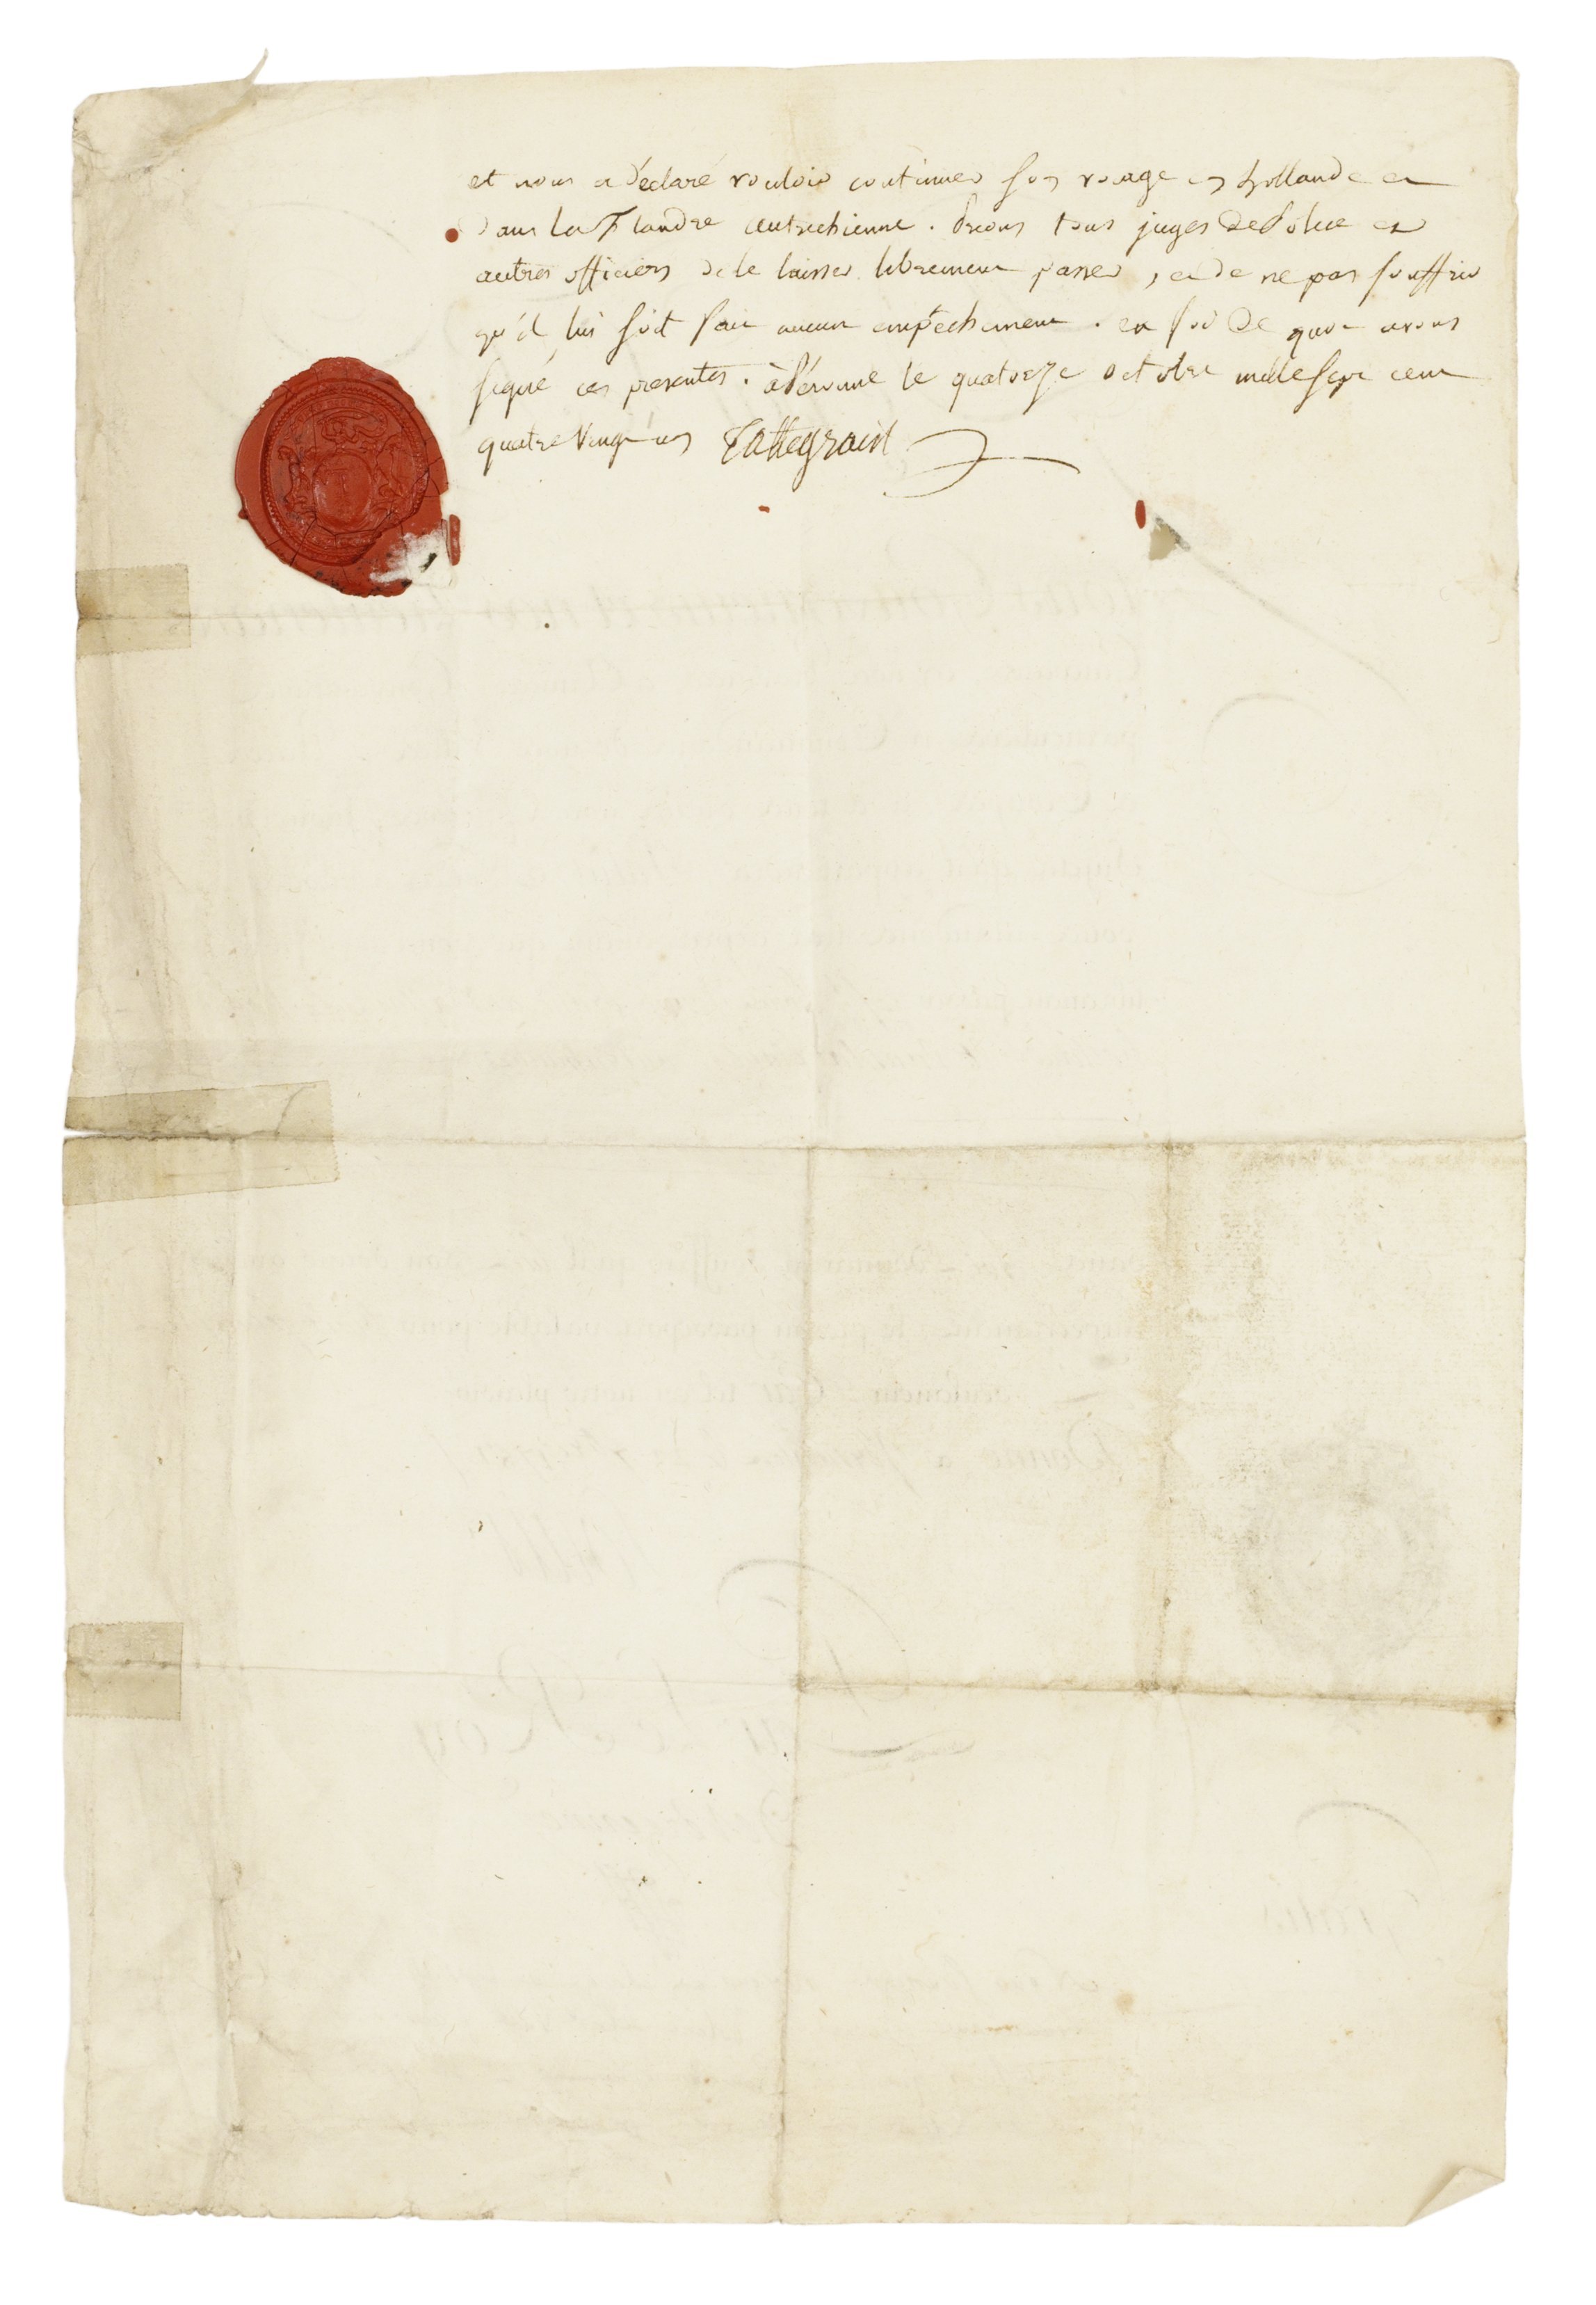 et nous a déclaré vouloir continuer son voiage en hollande et
dans la Flandre autrichienne. prions tous juges de Police et
autres officiers de le laisser librement passer, et de ne pas souffrir
qu'il lui soit fait aucun empêchement. en foi de quoi avons
signé ces presentes. à Péronne le quatorze octobre mille sept cent
quatre vingt un Tattegrain